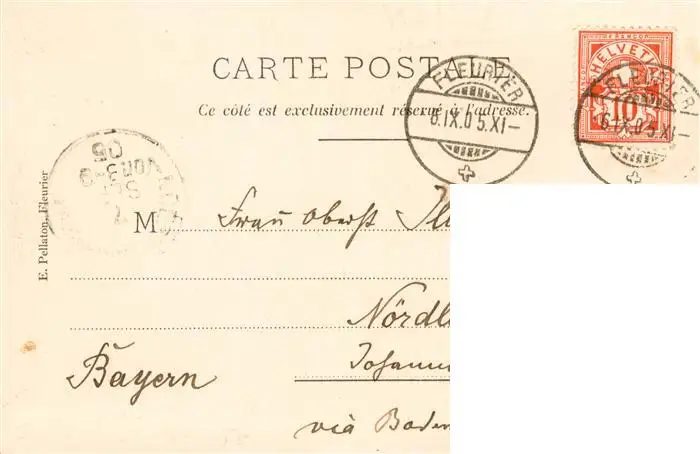 FRANCO
HELVETIA
10
CARTE POSTALE
FLEURIER
6.IX.05.XI–
FLEURIER
6.IX.05.XI–
Ce côté est exclusivement réservé à l'adresse.
05
M
Frau Oberst
Nördl
Bayern
Johann
via Boden
E. Pellaton, Fleurier